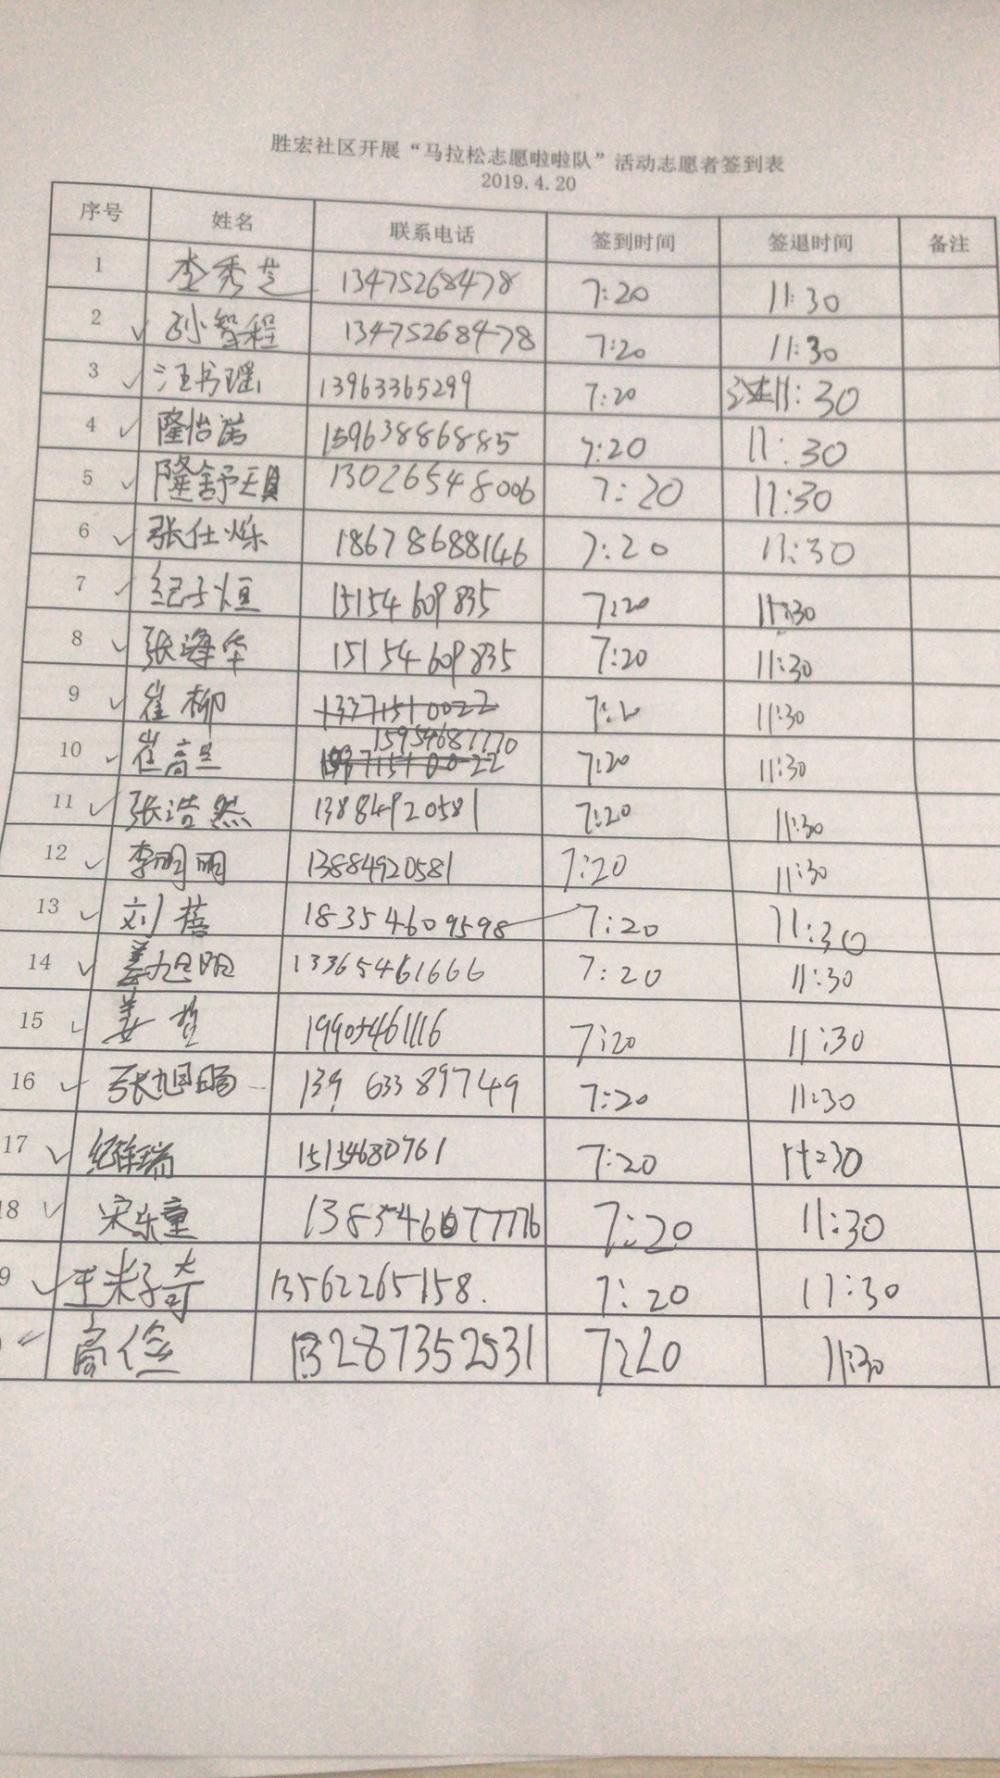 胜宏社区开展“马拉松志愿啦啦队”活动志愿者签到表
2019.4.20
序号 姓名 联系电话 签到时间 签退时间 备注
1 李秀芝 13475268478 7:20 11:30
2 孙智程 13475268478 7:20 11:30
3 汪书瑶 13963365299 7:20 11:30
4 隆怡诺 15963886885 7:20 11:30
5 隆舒 13026548006 7:20 11:30
6 张仕烁 18678688146 7:20 11:30
7 纪子恒 15154609835 7:20 11:30
8 张海华 15154609835 7:20 11:30
9 崔柳 13371510022 7:20 11:30
10 崔高 15954681770 7:20 11:30
11 张浩然 13884920581 7:20 11:30
12 李明明 13884920581 7:20 11:30
13 刘蓓 18354609598 7:20 11:30
14 姜旭阳 13365461666 7:20 11:30
15 姜 19905461116 7:20 11:30
16 张旭旸 13963389749 7:20 11:30
17 纪祥瑞 15154680761 7:20 11:30
8 宋东童 7:20 11:30
9 王米子奇 13562265158. 7:20 11:30
高俭 13287352531 7:20 11:30